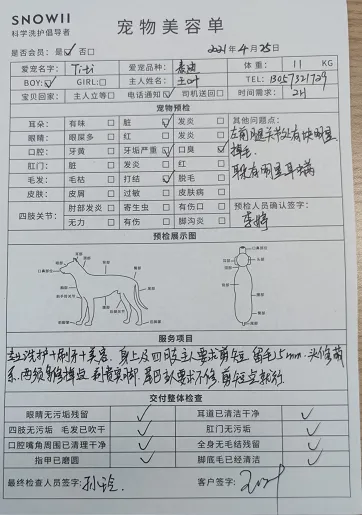 SNOWII
科学洗护倡导者
宠物美容单
是否会员：是☑ 否□
2021年4月25日
爱宠名字：Titi 爱宠品种：泰迪 体重：11 KG
BOY☑ GIRL：□ 主人姓名：王 TEL：
宝贝回家：主人立等□ 电话通知☑ 司机送回□ 时间需求：2H
宠物预检
耳朵：□有味 □脏 □发炎
眼睛：□眼屎多 □红 □发炎
口腔：□牙黄 □牙垢严重 □口臭
肛门：□脏 □发炎 □红
毛发：□毛枯 □打结 □脱毛
皮肤：□皮屑 □过敏 □皮肤病
四肢关节：□肘部发炎 □寄生虫 □有伤口
□无力 □有伤 □脚沟炎
其他问题点：
左前腿关节处有块明显
掉毛
耳朵有明显耳螨
预检人员确认签字：
李婷
预检展示图
服务项目
洗护+刷牙+美容。身上及四肢主人要求剪短，留毛5mm，头修萌
系，
尾巴主人要求不修，剪短点就行
交付整体检查
眼睛无污垢残留 ✓ 耳道已清洁干净 ✓
四肢无污垢 毛发已吹干 ✓ 肛门无污垢 ✓
口腔嘴角周围已清理干净 ✓ 全身无毛结残留 ✓
指甲已磨圆 ✓ 脚底毛已经清洁 ✓
最终检查人员签字：孙玲 客户签字：